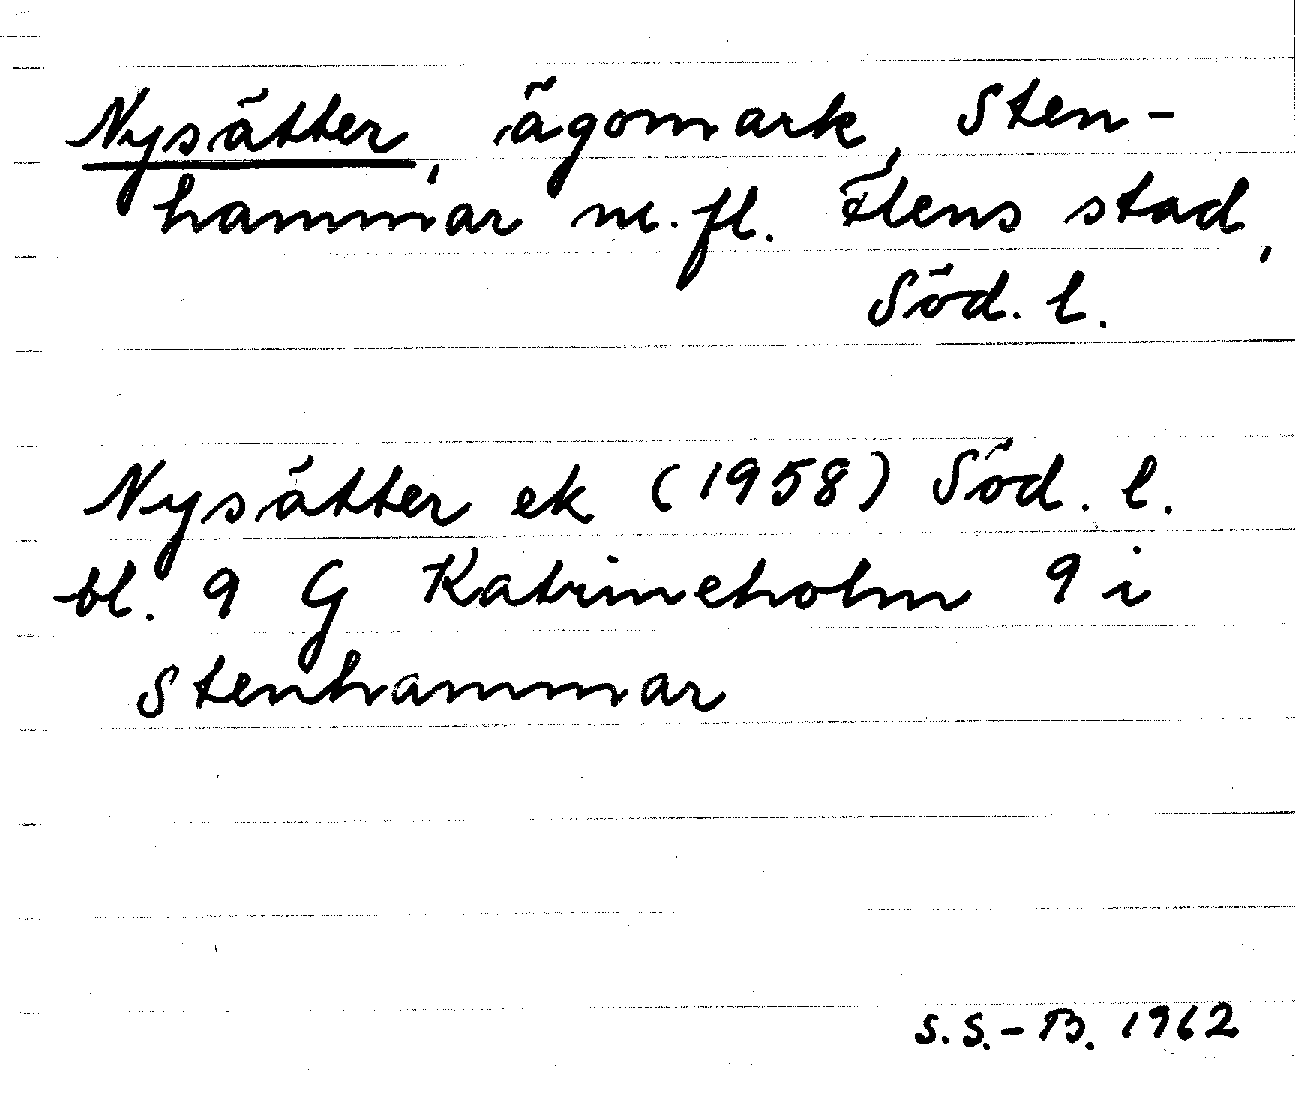 Nysätter, ägomark, Sten-
hammar m.fl. Flens stad,
Söd. l.
Nysätter ek (1958) Söd. l.
bl. 9 G Katrineholm 9 i
Stenhammar
S.S.-B. 1962